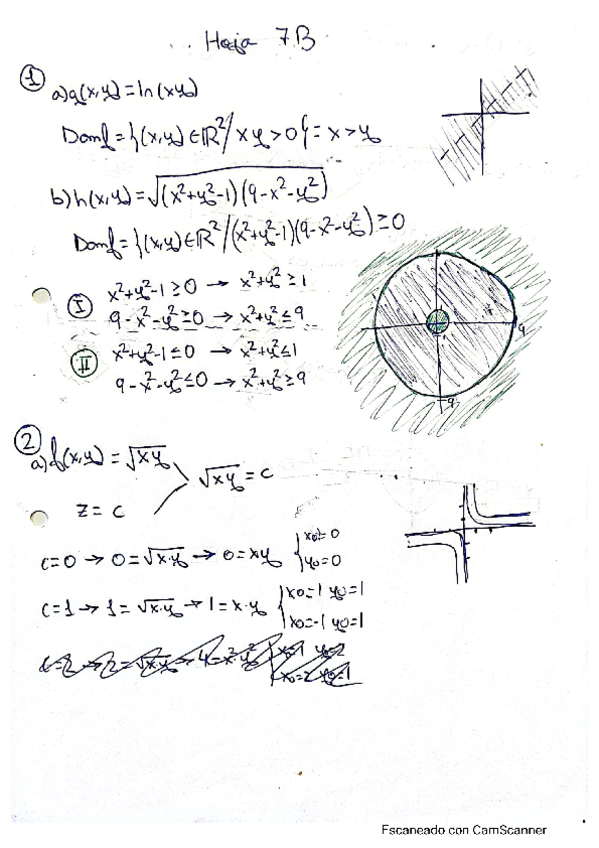 Hoja 7B
1
a) g(x,y) = ln(xy)
Domf = {(x,y) ∈ ℝ² / xy > 0} = x > y
b) h(x,y) = √(x²+y²-1)(9-x²-y²)
Domf = {(x,y) ∈ ℝ² / (x²+y²-1)(9-x²-y²) ≥ 0
I
x²+y²-1 ≥ 0 → x²+y² ≥ 1
9-x²-y² ≥ 0 → x²+y² ≤ 9
II
x²+y²-1 ≤ 0 → x²+y² ≤ 1
9-x²-y² ≤ 0 → x²+y² ≥ 9
9
-9
2
a) f(x,y) = √xy
√xy = c
z = c
c=0 → 0 = √x·y → 0 = xy { x0 = 0
y0 = 0
c=1 → 1 = √x·y → 1 = x·y { x0=1 y0=1
x0=-1 y0=1
Escaneado con CamScanner